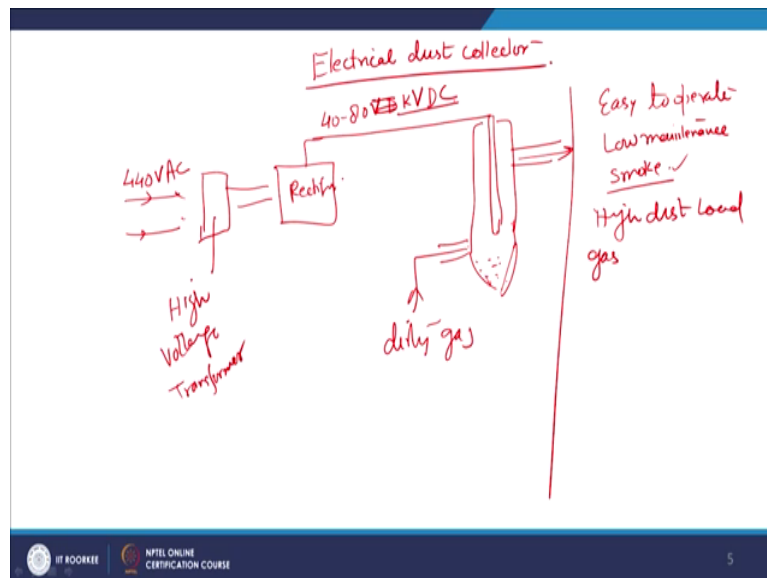 Electrical dust collector
40-80 kVDC
440VAC
Rectifr.
High
Voltage
Transformer
dirty gas
Easy to operate
Low maintenance
Smoke ✓
High dust load
gas
IIT ROORKEE
NPTEL ONLINE
CERTIFICATION COURSE
5